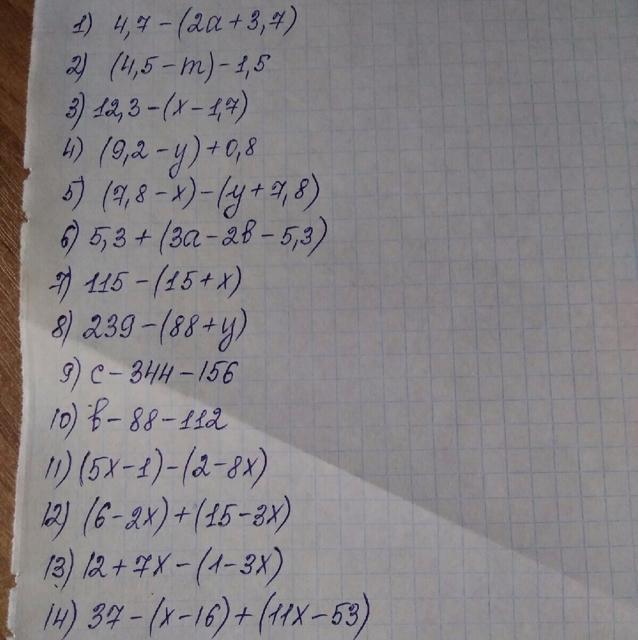 1) 4,7 - (2a + 3,7)
2) (4,5 - m) - 1,5
3) 12,3 - (x - 1,7)
4) (9,2 - y) + 0,8
5) (7,8 - x) - (y + 7,8)
6) 5,3 + (3a - 2b - 5,3)
7) 115 - (15 + x)
8) 239 - (88 + y)
9) c - 344 - 156
10) b - 88 - 112
11) (5x - 1) - (2 - 8x)
12) (6 - 2x) + (15 - 3x)
13) 12 + 7x - (1 - 3x)
14) 37 - (x - 16) + (11x - 53)